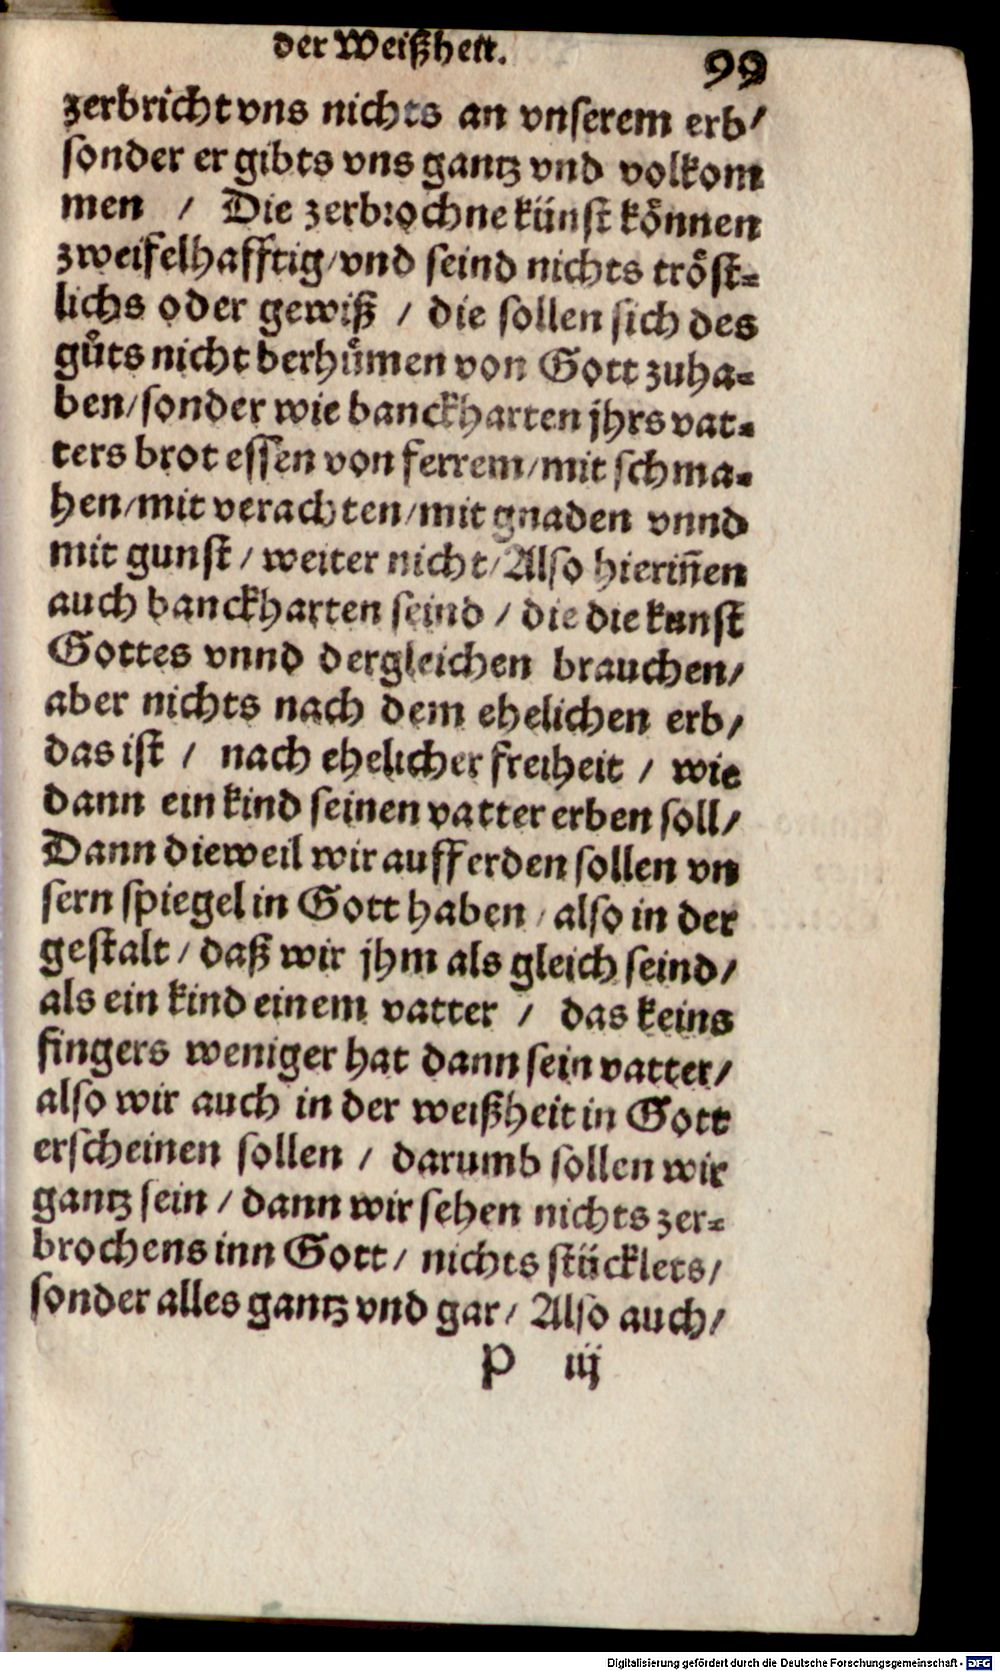 der Weißheit.
99
zerbricht vns nichts an vnserem erb/
sonder er gibts vns gantz vnd volkom
men / Die zerbrochne künst können
zweifelhafftig/vnd seind nichts tröst=
lichs oder gewiß / die sollen sich des
gůts nicht berhůmen von Gott zuha=
ben/sonder wie banckharten jhrs vat=
ters brot essen von ferrem/mit schma=
hen/mit verachten/mit gnaden vnnd
mit gunst / weiter nicht/Also hierin̄en
auch banckharten seind / die die kunst
Gottes vnnd dergleichen brauchen/
aber nichts nach dem ehelichen erb/
das ist / nach ehelicher freiheit / wie
dann ein kind seinen vatter erben soll/
Dann dieweil wir auff erden sollen vn
sern spiegel in Gott haben / also in der
gestalt / daß wir jhm als gleich seind/
als ein kind einem vatter / das keins
fingers weniger hat dann sein vatter/
also wir auch in der weißheit in Gott
erscheinen sollen / darumb sollen wir
gantz sein / dann wir sehen nichts zer=
brochens inn Gott / nichts stücklets/
sonder alles gantz vnd gar / Also auch/
P iij
Digitalisierung gefördert durch die Deutsche Forschungsgemeinschaft - DFG